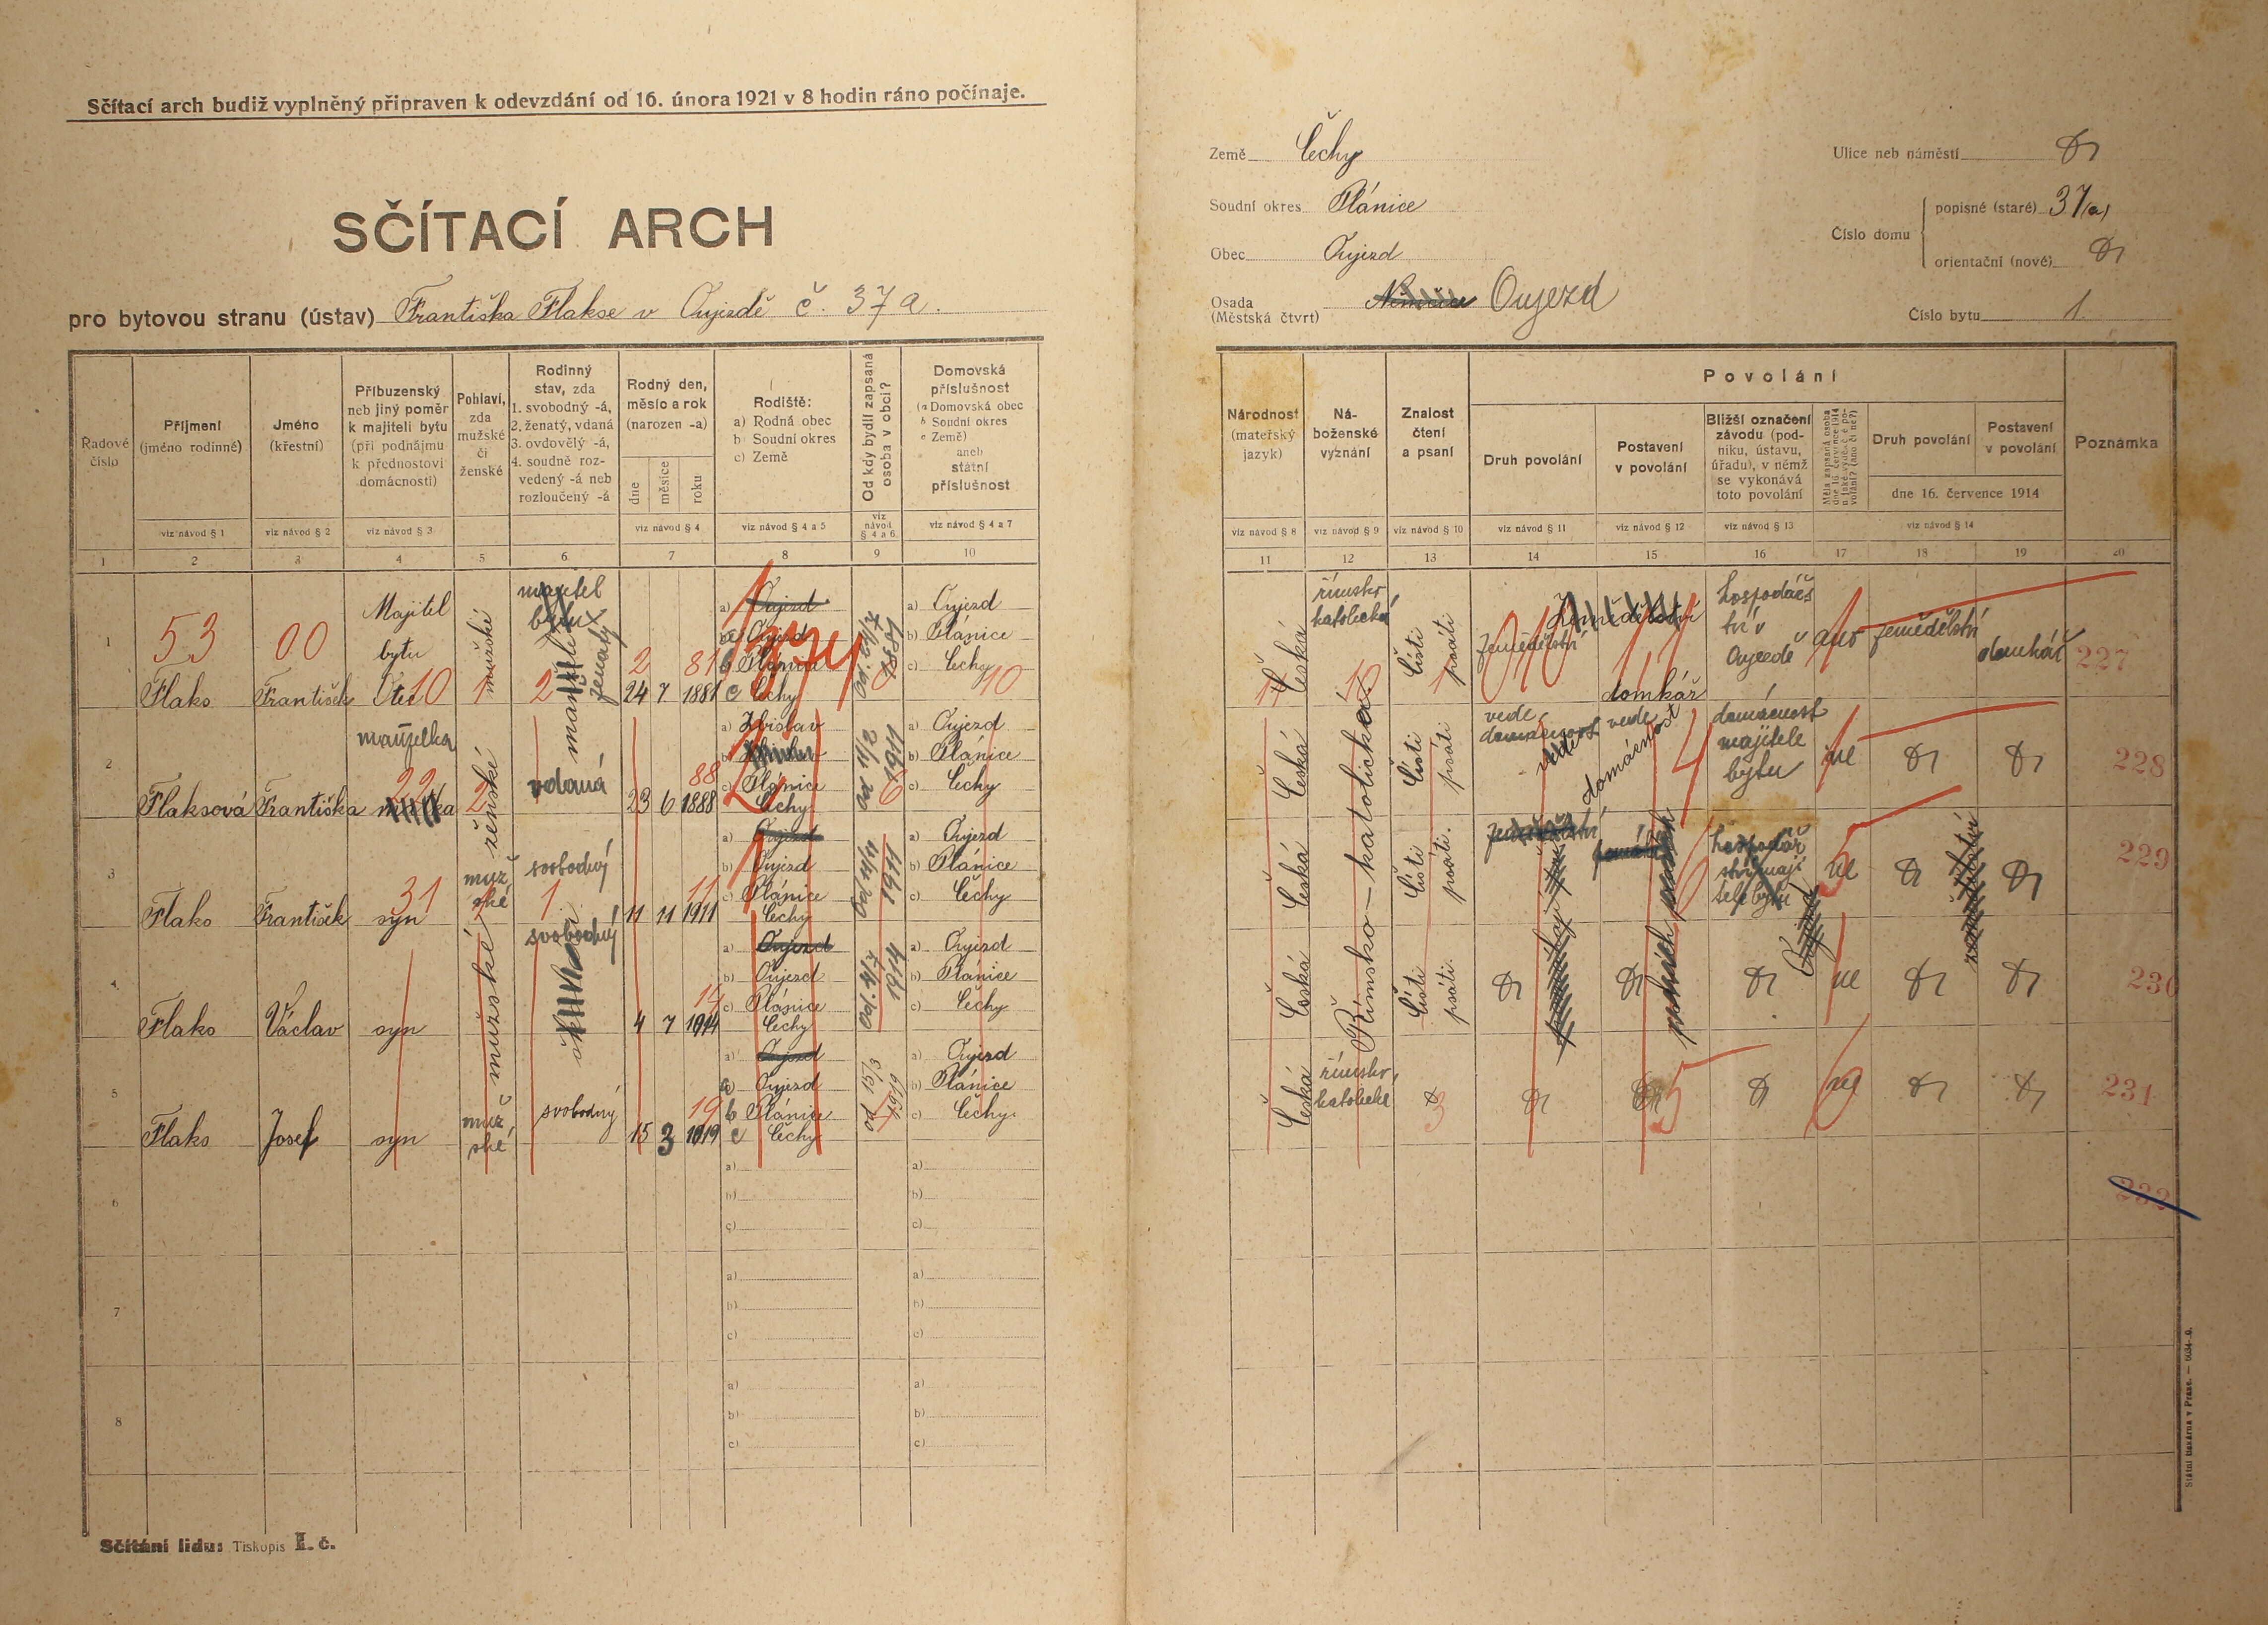 Sčítací arch budiž vyplněný připraven k odevzdání od 16. února 1921 v 8 hodin ráno počínaje.
SČÍTACÍ ARCH
pro bytovou stranu (ústav) Františka Flakse v Oujezdě č. 37a.
Země Čechy
Soudní okres Plánice
Obec Oujezd
Osada Oujezd
(Městská čtvrt)
Ulice neb náměstí
Číslo domu
popisné (staré) 37(a)
orientační (nové)
Číslo bytu 1.
Řadové číslo
Příjmení (jméno rodinné)
Jméno (křestní)
Příbuzenský neb jiný poměr k majiteli bytu (při podnájmu k přednostovi domácnosti)
Pohlaví, zda mužské či ženské
Rodinný stav, zda
1. svobodný -á,
2. ženatý, vdaná
3. ovdovělý -á,
4. soudně rozvedený -á neb rozloučený -á
Rodný den, měsíc a rok (narozen -a)
dne měsíce roku
Rodiště:
a) Rodná obec
b) Soudní okres
c) Země
Od kdy bydlí zapsaná osoba v obci?
Domovská příslušnost
(a Domovská obec
b Soudní okres
c Země)
aneb státní příslušnost
viz návod § 1 viz návod § 2 viz návod § 3 viz návod § 4 viz návod § 4 a 5 viz návod § 4 a 6 viz návod § 4 a 7
1 2 3 4 5 6 7 8 9 10
Národnost (mateřský jazyk)
Náboženské vyznání
Znalost čtení a psaní
Povolání
Druh povolání
Postavení v povolání
Bližší označení závodu (podniku, ústavu, úřadu), v němž se vykonává toto povolání
Druh povolání
Postavení v povolání
dne 16. července 1914
Poznámka
viz návod § 8 viz návod § 9 viz návod § 10 viz návod § 11 viz návod § 12 viz návod § 13 viz návod § 14
11 12 13 14 15 16 17 18 19 20
1 53 00 Majitel bytu
Flaks František Otec 10 mužské 1 2 ženatý 24 7 1881 2 81
Oujezd
b Plánice
c Čechy
od 24/7 1881
a) Oujezd
b) Plánice
c) Čechy 10
Česká římsko katolické čísti psáti zemědělství domkář hospodářství v Oujezdě ano zemědělství domkář 227
2 manželka
Flaksová Františka 22 ženské 2 vdaná 23 6 1888 88
a) Zbislav
Plánice
Čechy
6 1911
a) Oujezd
b) Plánice
c) Čechy
Česká Římsko-katolická čísti psáti vede domácnost vede domácnost domácnost majitele bytu ne 228
3 Flaks František syn 31 mužské svobodný 1 11 11 1911 11
Oujezd
Plánice
Čechy
od 11/11 1911
a) Oujezd
b) Plánice
c) Čechy
Česká čísti psáti. ne 229
4 Flaks Václav syn mužské svobodný 4 7 1914 14
Oujezd
Plánice
Čechy
od 4/7 1914
a) Oujezd
b) Plánice
c) Čechy
Česká čísti psáti. ne 230
5 Flaks Josef syn mužské svobodný 15 3 1919 19
a) Oujezd
b Plánice
c Čechy
od 15/3 1919
a) Oujezd
b) Plánice
c) Čechy.
Česká římsko katolické 3 5 ne 231
6 a) b) c) a) b) c) 232
7 a) b) c) a) b) c)
8 a) b) c) a) b) c)
Sčítání lidu: Tiskopis I. č.
Státní tiskárna v Praze. — 6034-0.